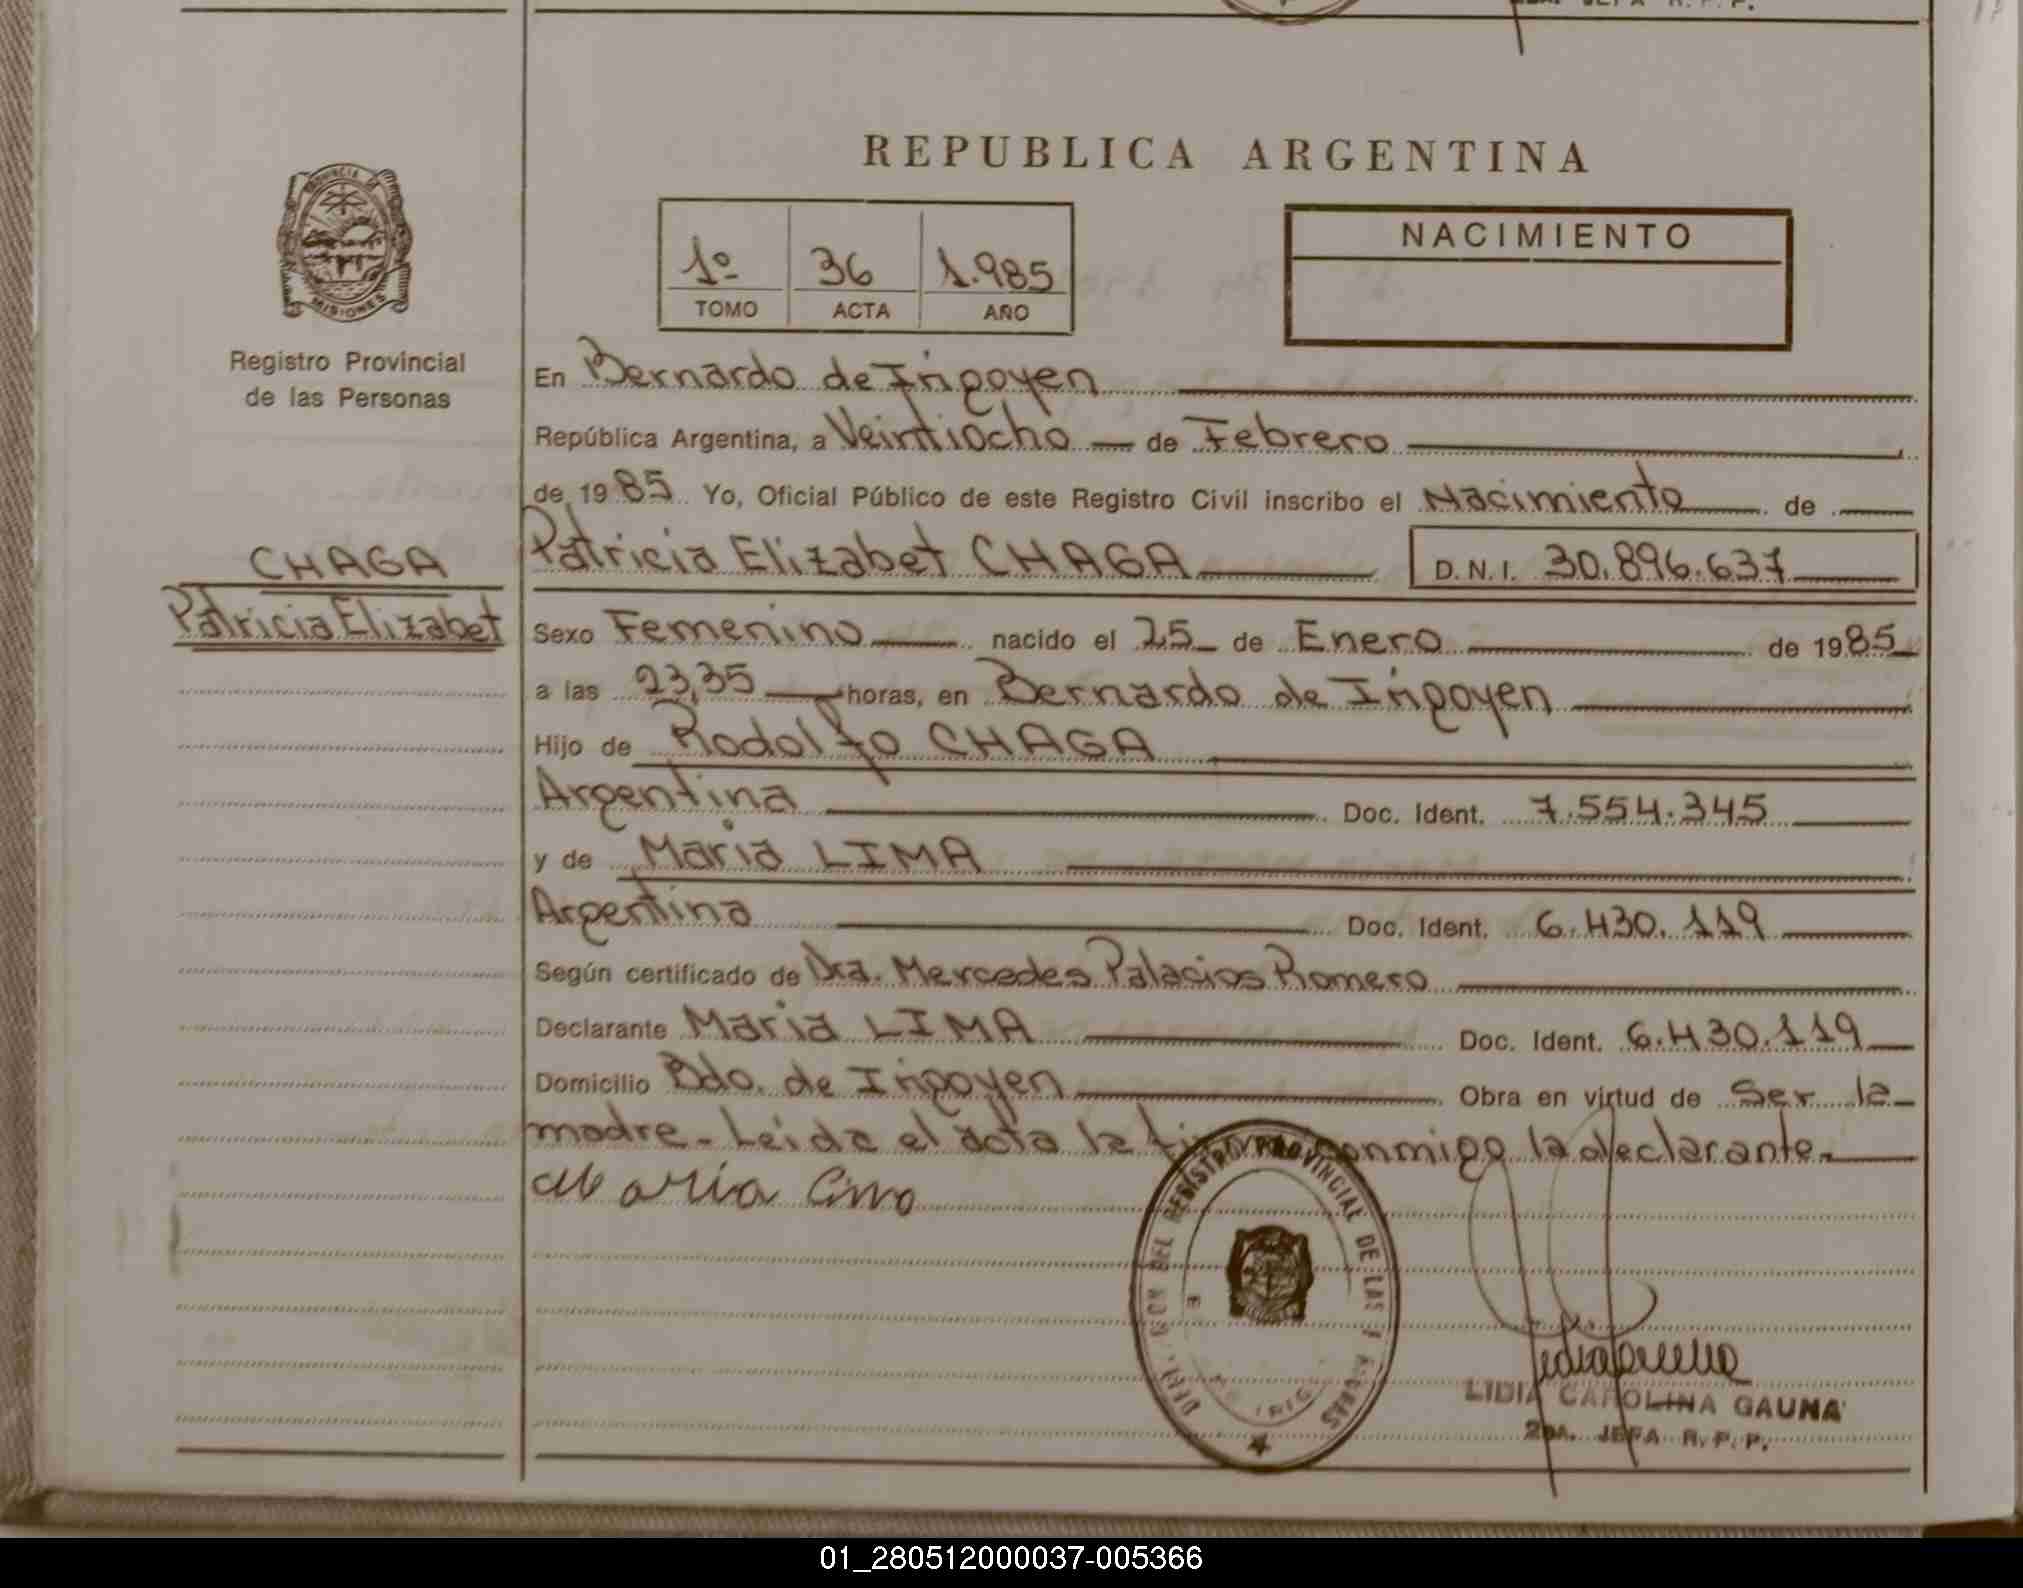 REPUBLICA ARGENTINA
PROVINCIA DE
MISIONES
Registro Provincial
de las Personas
1º 36 1.985
TOMO ACTA AÑO
NACIMIENTO
En Bernardo de Irigoyen
República Argentina, a Veintiocho de Febrero
de 1985 Yo, Oficial Público de este Registro Civil inscribo el Nacimiento de
CHAGA
Patricia Elizabet
Patricia Elizabet CHAGA D.N.I. 30.896.637
Sexo Femenino nacido el 25 de Enero de 1985
a las 23,35 horas, en Bernardo de Irigoyen
Hijo de Rodolfo CHAGA
Argentina Doc. Ident. 7.554.345
y de Maria LIMA
Argentina Doc. Ident. 6.430.119
Según certificado de Dra. Mercedes Palacios Romero
Declarante Maria LIMA Doc. Ident. 6.430.119
Domicilio Bdo. de Irigoyen Obra en virtud de Ser la
madre. Leida el acta la conmigo la declarante.
Maria Lima
REGISTRO PROVINCIAL DE LAS
LIDIA CAROLINA GAUNA
2DA. JEFA R.P.P.
01_280512000037-005366